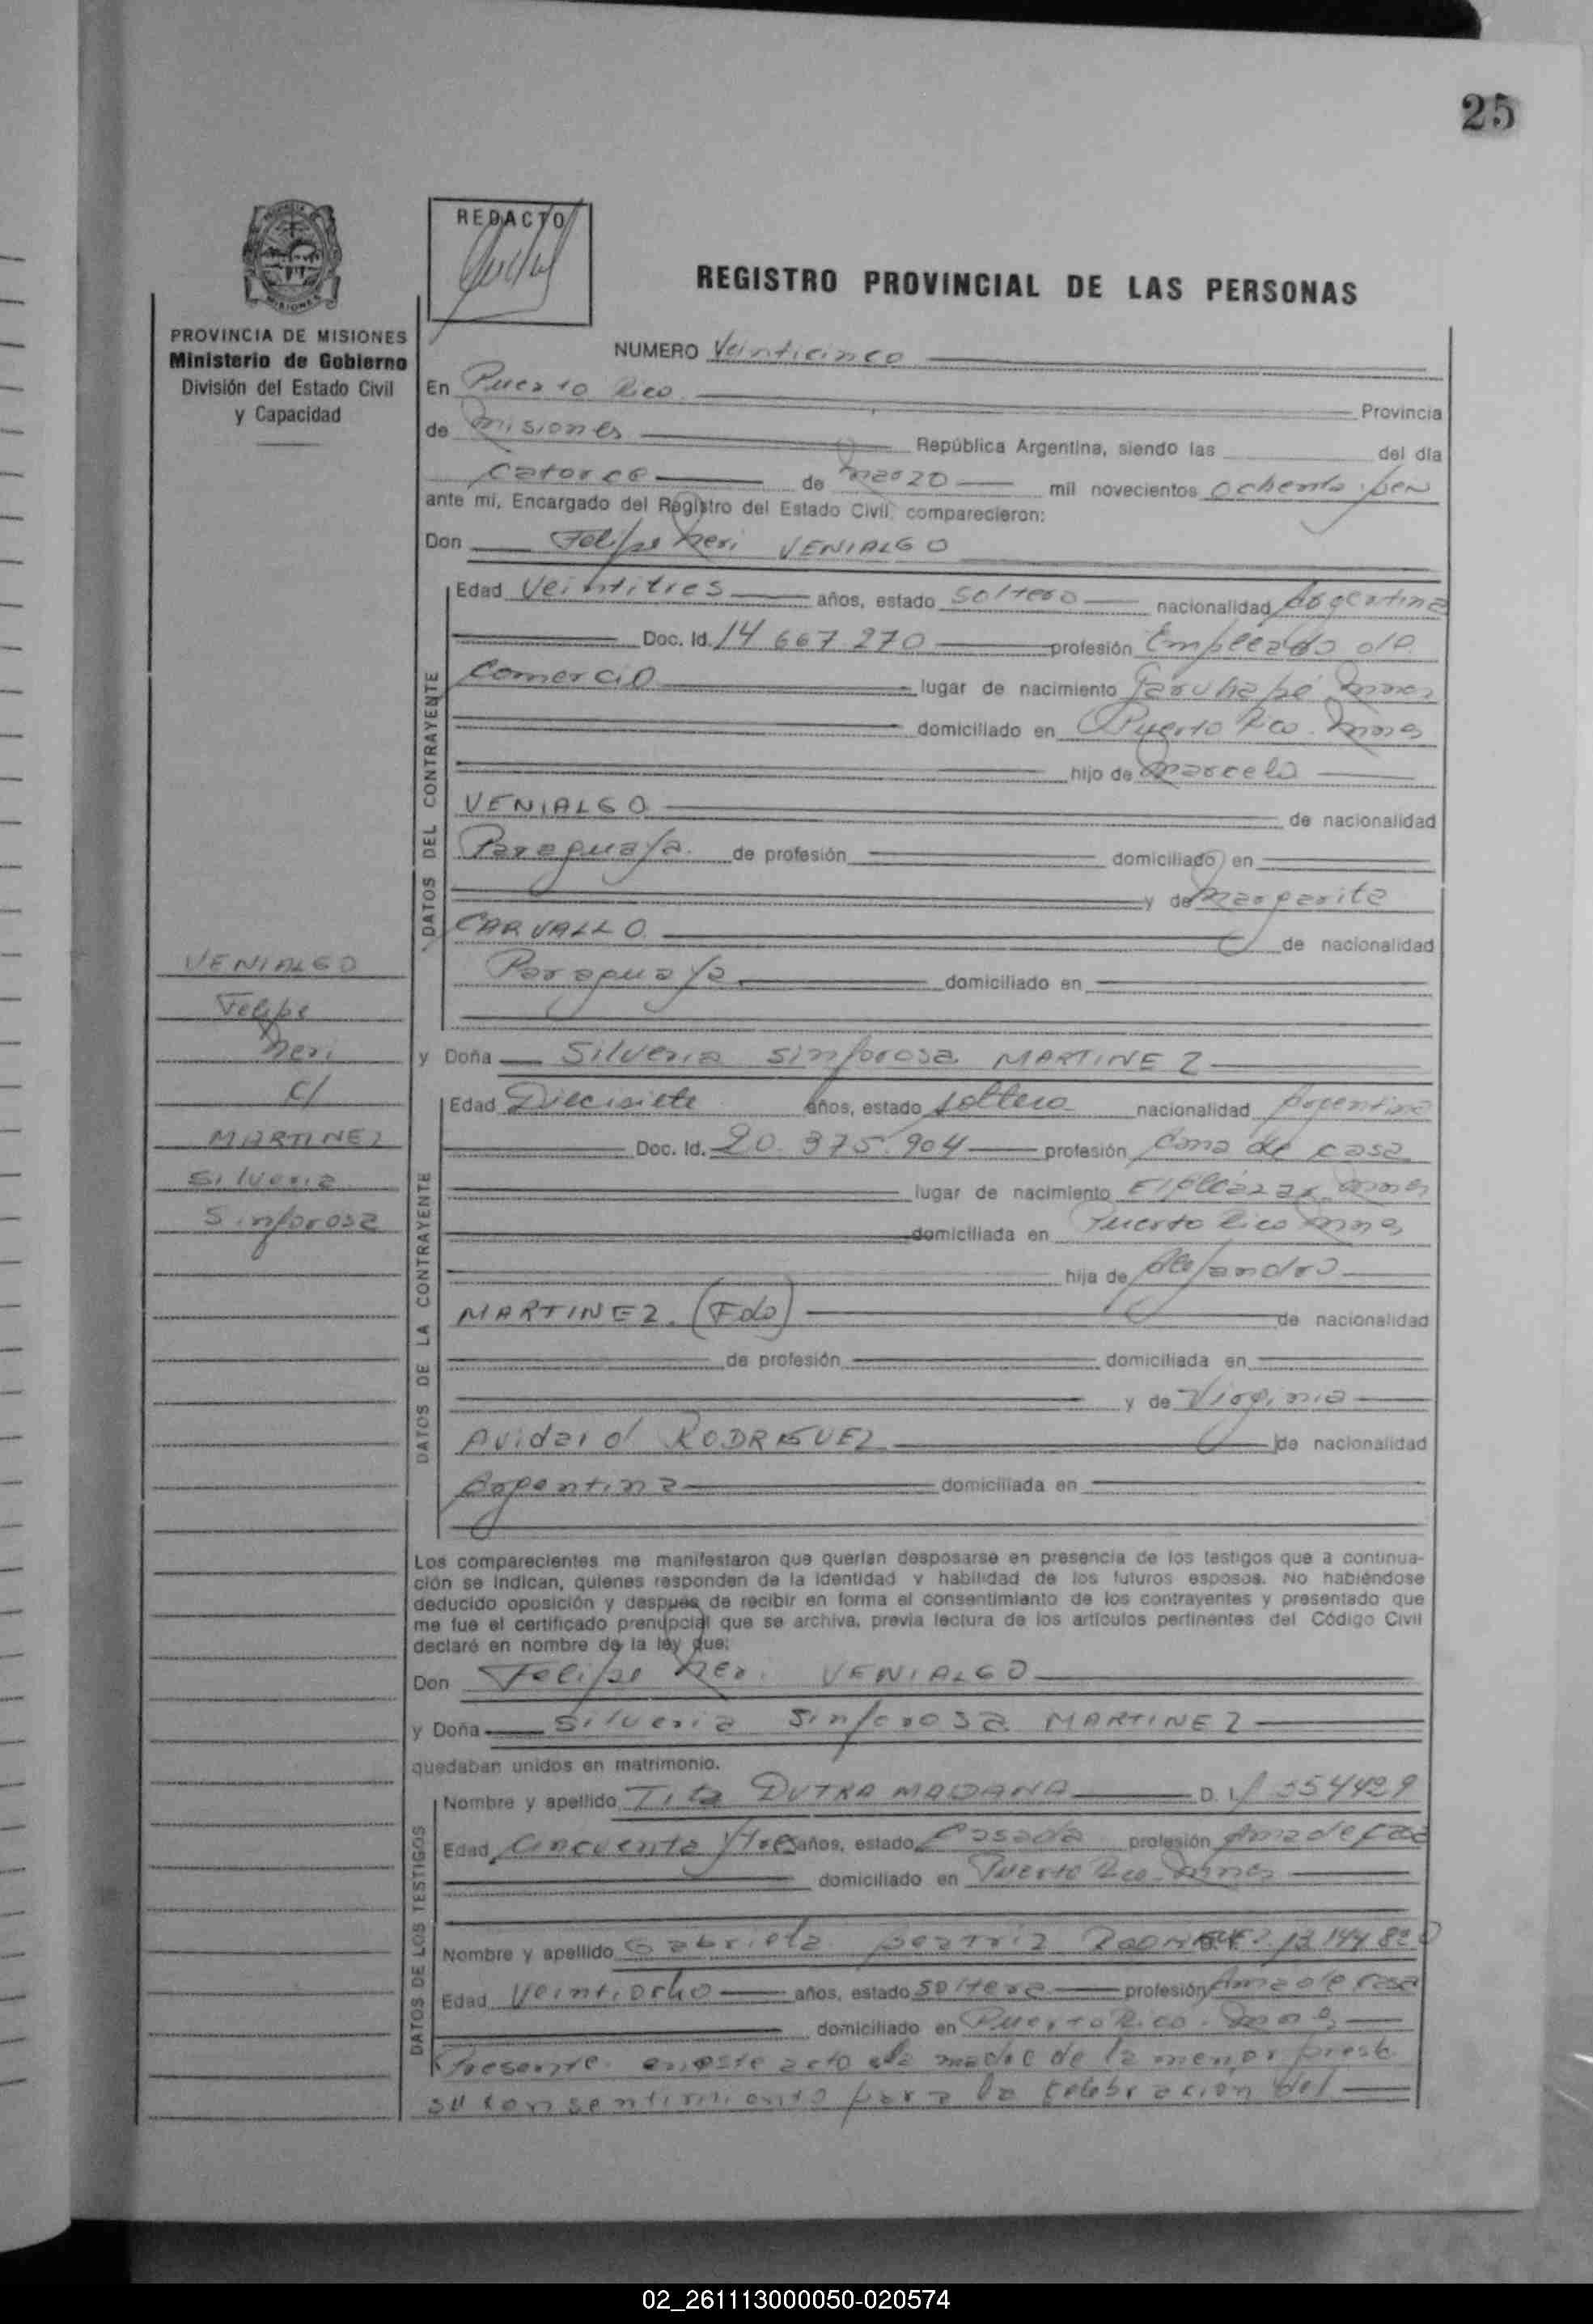 25
REDACTO
REGISTRO PROVINCIAL DE LAS PERSONAS
PROVINCIA DE MISIONES
Ministerio de Gobierno
División del Estado Civil
y Capacidad
NUMERO Veinticinco
En Puerto Rico Provincia
de Misiones República Argentina, siendo las del día
Catorce de Marzo mil novecientos ochenta
ante mí, Encargado del Registro del Estado Civil, comparecieron:
Don Felipe Neri VENIALGO
DATOS DEL CONTRAYENTE
Edad Veintitres años, estado Soltero nacionalidad Argentina
Doc. Id. 14 667 270 profesión Empleado de
Comercio lugar de nacimiento Garuhapé Mnes
domiciliado en Puerto Rico. Mnes
hijo de Marcelo
VENIALGO de nacionalidad
Paraguaya de profesión domiciliado en
y de Margarita
CARVALLO de nacionalidad
Paraguaya domiciliado en
VENIALGO
Felipe
Neri
c/
MARTINEZ
Silveria
Sinforosa
y Doña Silveria Sinforosa MARTINEZ
DATOS DE LA CONTRAYENTE
Edad Diecisiete años, estado soltera nacionalidad Argentina
Doc. Id. 20.375.904 profesión Ama de casa
lugar de nacimiento El Alcázar Mnes
domiciliada en Puerto Rico Mnes
hija de Alejandro
MARTINEZ. (Fdo) de nacionalidad
de profesión domiciliada en
y de Virginia
RODRIGUEZ de nacionalidad
Argentina domiciliada en
Los comparecientes me manifestaron que querían desposarse en presencia de los testigos que a continua-
ción se indican, quienes responden de la identidad y habilidad de los futuros esposos. No habiéndose
deducido oposición y después de recibir en forma el consentimiento de los contrayentes y presentado que
me fue el certificado prenupcial que se archiva, previa lectura de los artículos pertinentes del Código Civil
declaré en nombre de la ley que:
Don Felipe Neri VENIALGO
y Doña Silveria Sinforosa MARTINEZ
quedaban unidos en matrimonio.
DATOS DE LOS TESTIGOS
Nombre y apellido Tita DUTRA D. I. 554429
Edad Cincuenta y tres años, estado Casada profesión Ama de casa
domiciliado en Puerto Rico Mnes
Nombre y apellido Gabriela Beatriz RODRIGUEZ 12 144 820
Edad Veintiocho años, estado Soltera profesión Ama de casa
domiciliado en Puerto Rico. Mnes
Presente en este acto la madre de la menor presta
su consentimiento para la celebración del
02_261113000050-020574